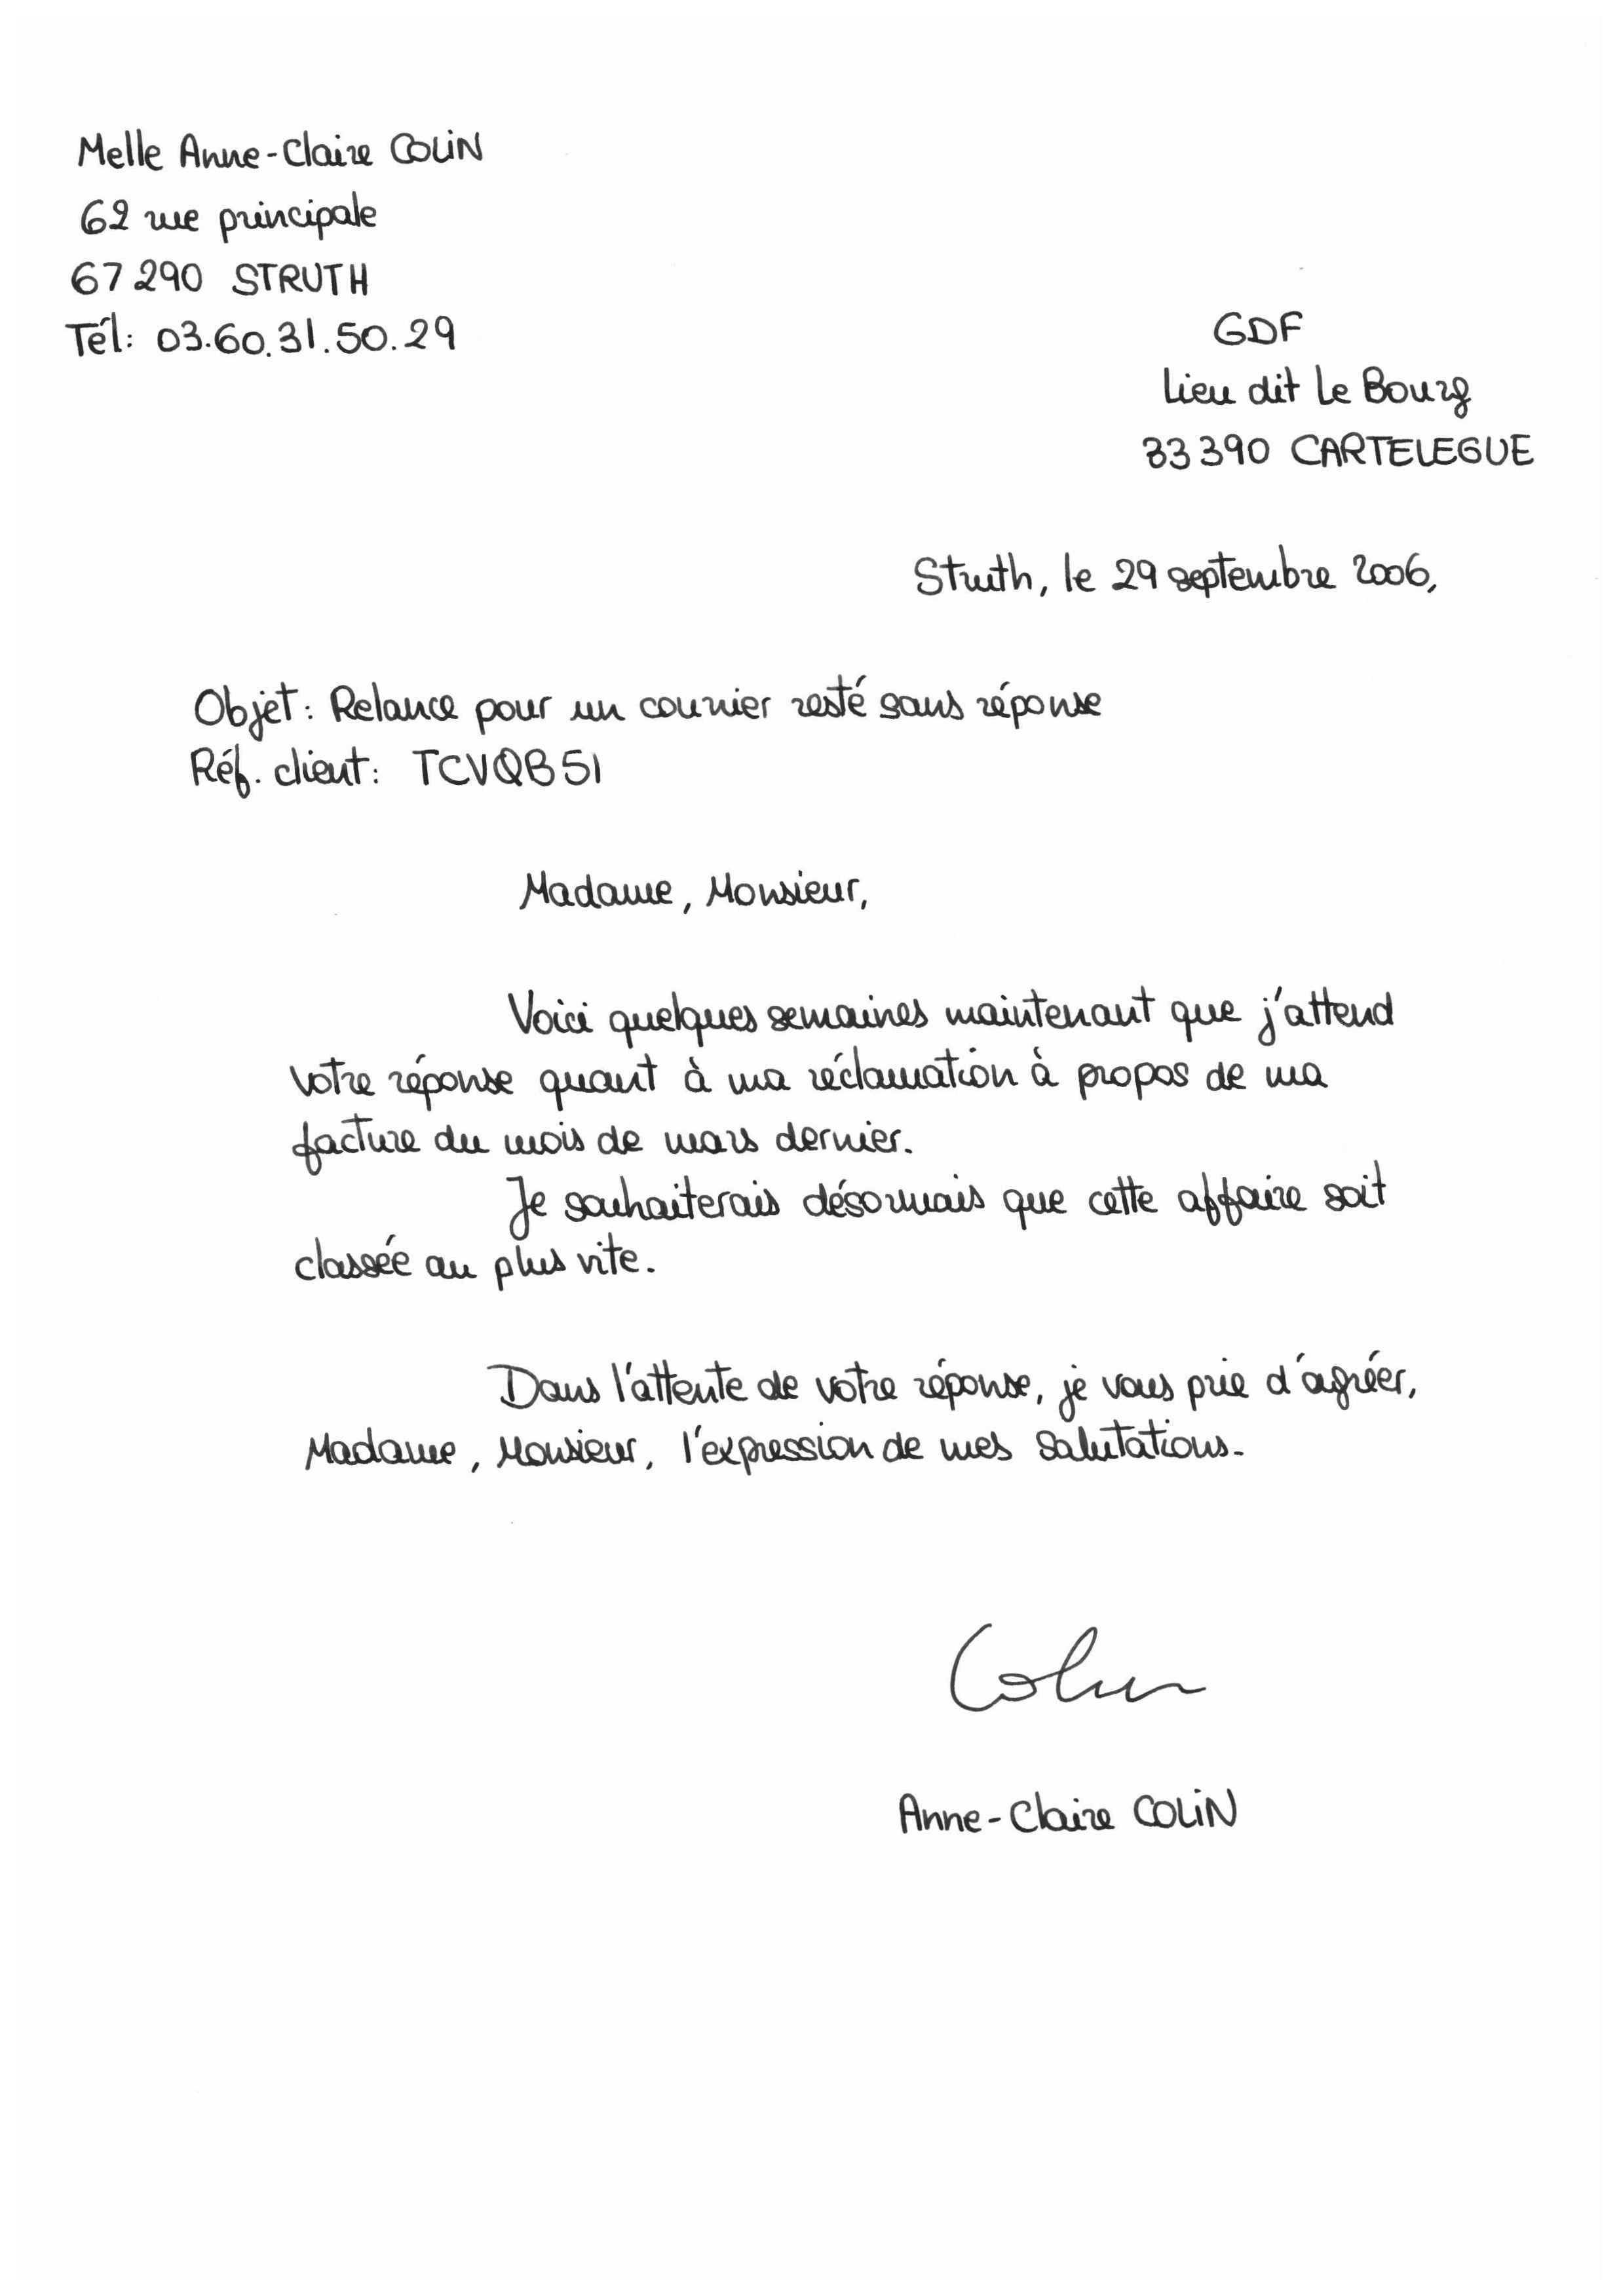 Melle Anne-Claire COLIN
62 rue principale
67290 STRUTH
Tél: 03.60.31.50.29
GDF
Lieu dit Le Bourg
33390 CARTELEGUE
Struth, le 29 septembre 2006,
Objet: Relance pour un courrier resté sans réponse
Réf. client: TCVQB51
Madame, Monsieur,
Voici quelques semaines maintenant que j'attend
votre réponse quant à ma réclamation à propos de ma
facture du mois de mars dernier.
Je souhaiterais désormais que cette affaire soit
classée au plus vite.
Dans l'attente de votre réponse, je vous prie d'agréer,
Madame, Monsieur, l'expression de mes salutations.
Colin
Anne-Claire COLIN